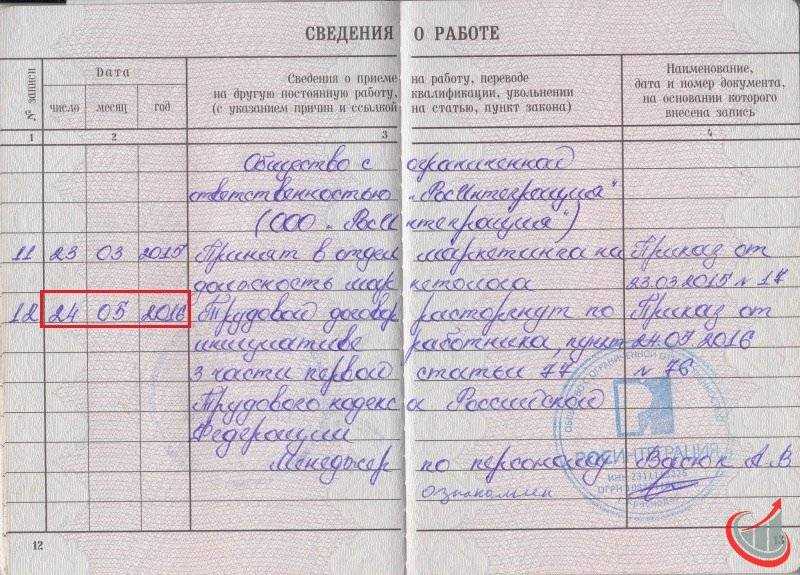 СВЕДЕНИЯ О РАБОТЕ
№ записи
Дата
Сведения о приеме на работу, переводе
на другую постоянную работу, квалификации, увольнении
(с указанием причин и ссылкой на статью, пункт закона)
Наименование,
дата и номер документа,
на основании которого
внесена запись
число месяц год
1 2 3 4
Общество с ограниченной
ответственностью „РосИнтеграция“
(ООО „РосИнтеграция“)
11 23 03 2015 Принят в отдел маркетинга на Приказ от
должность маркетолога 23.03.2015 № 17
12 24 05 2016 Трудовой договор расторгнут по Приказ от
инициативе работника, пункт 24.05.2016
3 части первой статьи 77 № 76
Трудового кодекса Российской
Федерации
Менеджер по персоналу А.В
РОСИНТЕГРАЦИЯ
ознакомлен
12 13